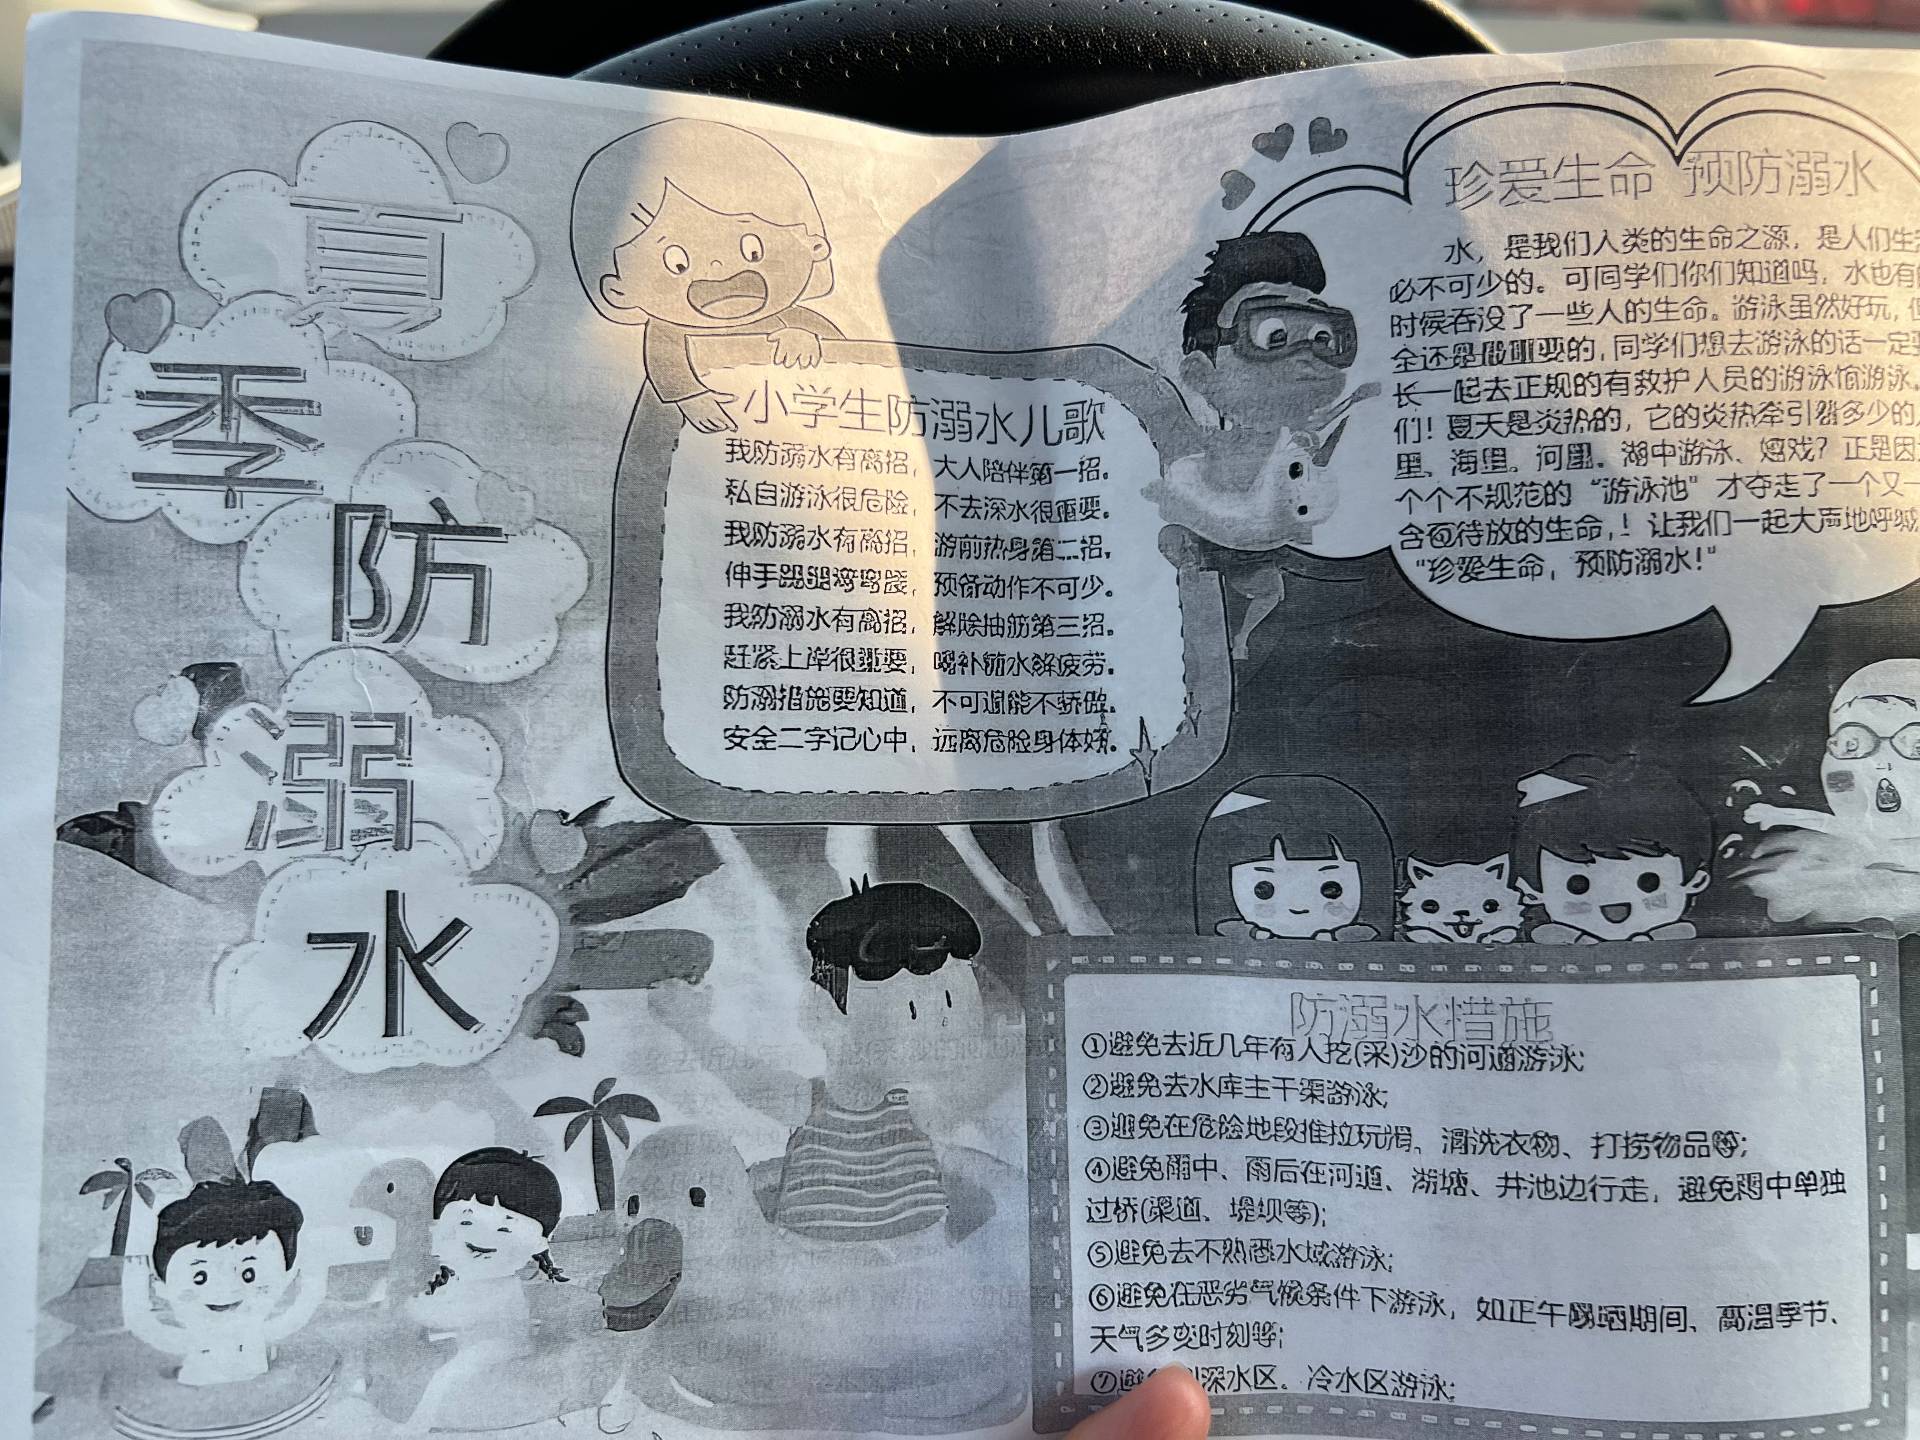 夏
季
防
溺
水
小学生防溺水儿歌
我防溺水有高招，大人陪伴第一招。
私自游泳很危险，不去深水很重要。
我防溺水有高招，游前热身第二招，
伸手 弯弯腰，预备动作不可少。
我防溺水有高招，解除抽筋第三招。
赶紧上岸很重要，喝补 水解疲劳。
防溺措施要知道，不可逞能不骄傲。
安全二字记心中，远离危险身体好。
珍爱生命 预防溺水
水，是我们人类的生命之源，是人们生
必不可少的。可同学们你们知道吗，水也有
时候吞没了一些人的生命。游泳虽然好玩，但
全还是最重要的，同学们想去游泳的话一定要
长一起去正规的有救护人员的游泳馆游泳。
们！夏天是炎热的，它的炎热牵引着多少的人
里、海里。河里。湖中游泳、嬉戏？正是因
个个不规范的“游泳池”才夺走了一个又一
含苞待放的生命，！让我们一起大声地呼喊
“珍爱生命，预防溺水！”
防溺水措施
①避免去近几年有人挖(采)沙的河道游泳;
②避免去水库主干渠游泳;
③避免在危险地段推拉玩耍、清洗衣物、打捞物品等;
④避免雨中、雨后在河道、湖塘、井池边行走，避免雨中单独
过桥(渠道、堤坝等);
⑤避免去不熟悉水域游泳;
⑥避免在恶劣气候条件下游泳，如正午曝晒期间、高温季节、
天气多变时刻等;
⑦避 深水区。冷水区游泳;